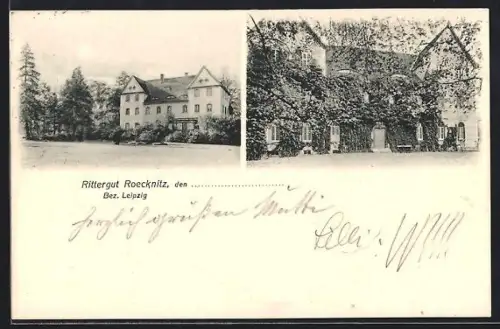 Rittergut Roecknitz, den ........................
Bez. Leipzig
herzlich grüßen Mutti
Lilli.